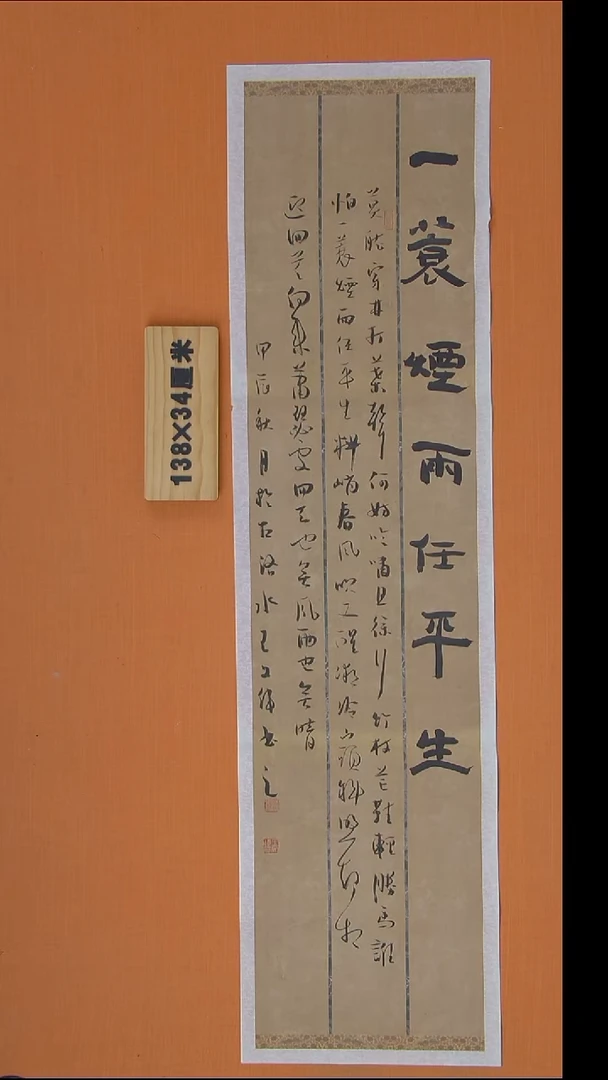 一蓑煙雨任平生
莫聽穿林打葉聲何妨吟嘯且徐行竹杖芒鞋輕勝馬誰
怕一蓑煙雨任平生料峭春風吹酒醒微冷山頭斜照却相
迎回首向來蕭瑟處回去也無風雨也無晴
甲辰秋月於古洛水王
書之
138×34厘米